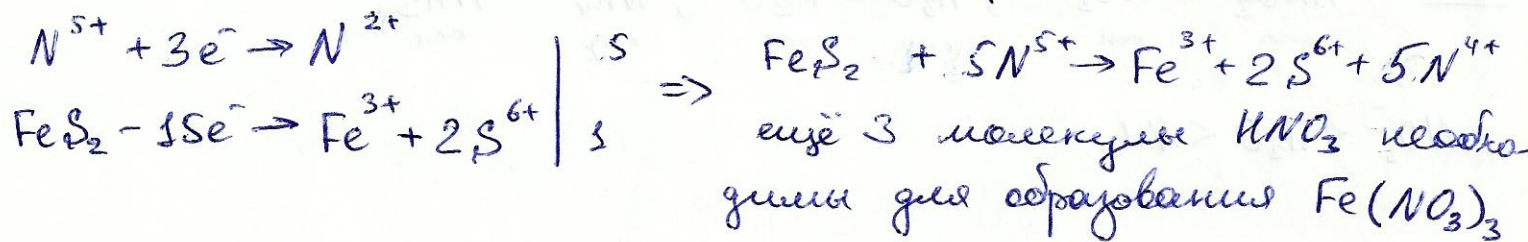 N⁵⁺ + 3e⁻ → N²⁺ | 5 ⇒ FeS₂ + 5N⁵⁺ → Fe³⁺ + 2S⁶⁺ + 5N⁴⁺
FeS₂ - 15e⁻ → Fe³⁺ + 2S⁶⁺ | 1 ещё 3 молекулы HNO₃ необхо-
димы для образования Fe(NO₃)₃